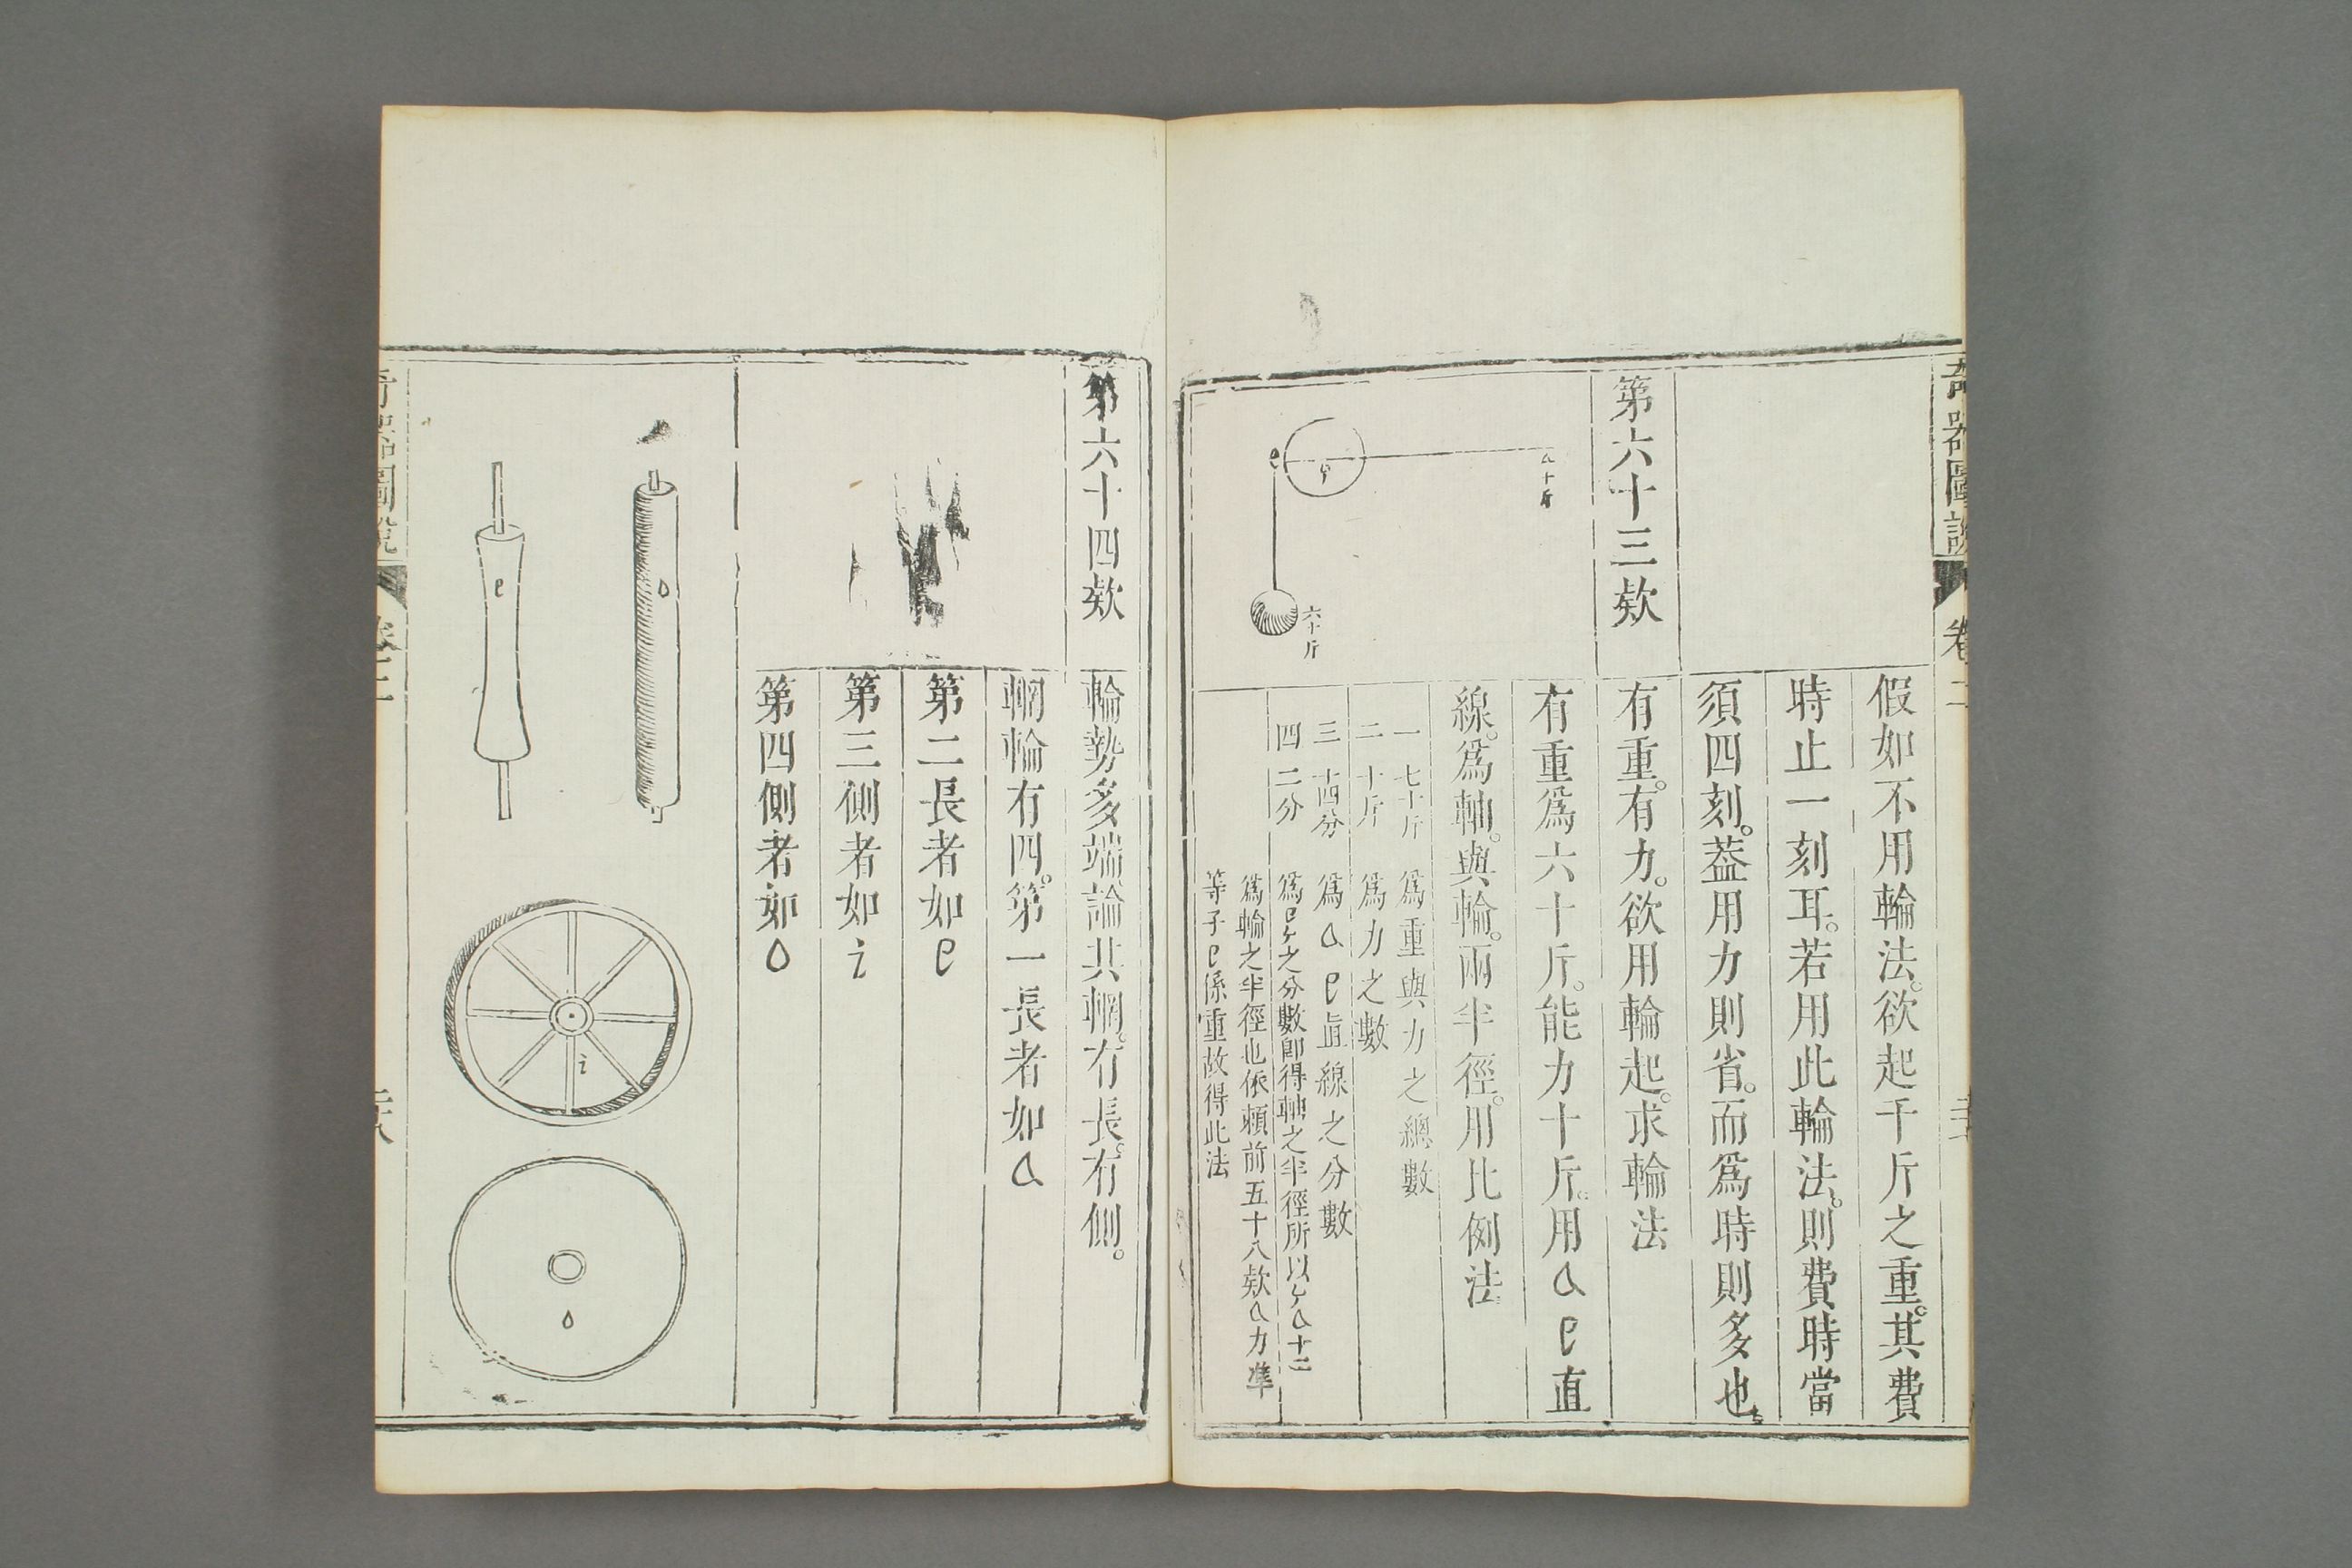 奇器圖說
卷二
假如不用輪法。欲起千斤之重。其費
時止一刻耳。若用此輪法。則費時當
須四刻。葢用力則省。而爲時則多也
第六十三欵
有重。有力。欲用輪起。求輪法
有重爲六十斤。能力十斤。用a e直
線。爲軸。與輪。兩半徑。用比例法
一 七十斤 爲重與力之總數
二 十斤 爲力之數
三 十四分 爲a e直線之分數
四 二分 爲e y之分數卽得軸之半徑所以y a十二
爲輪之半徑也依賴前五十八欵a力準
等子e係重故得此法
e
y
a
十斤
六十斤
第六十四欵
輪勢多端論共輞。有長。有側。
輞輪有四。第一長者如a
第二長者如e
第三側者如i
第四側者如o
o
e
i
o
奇器圖說
卷二